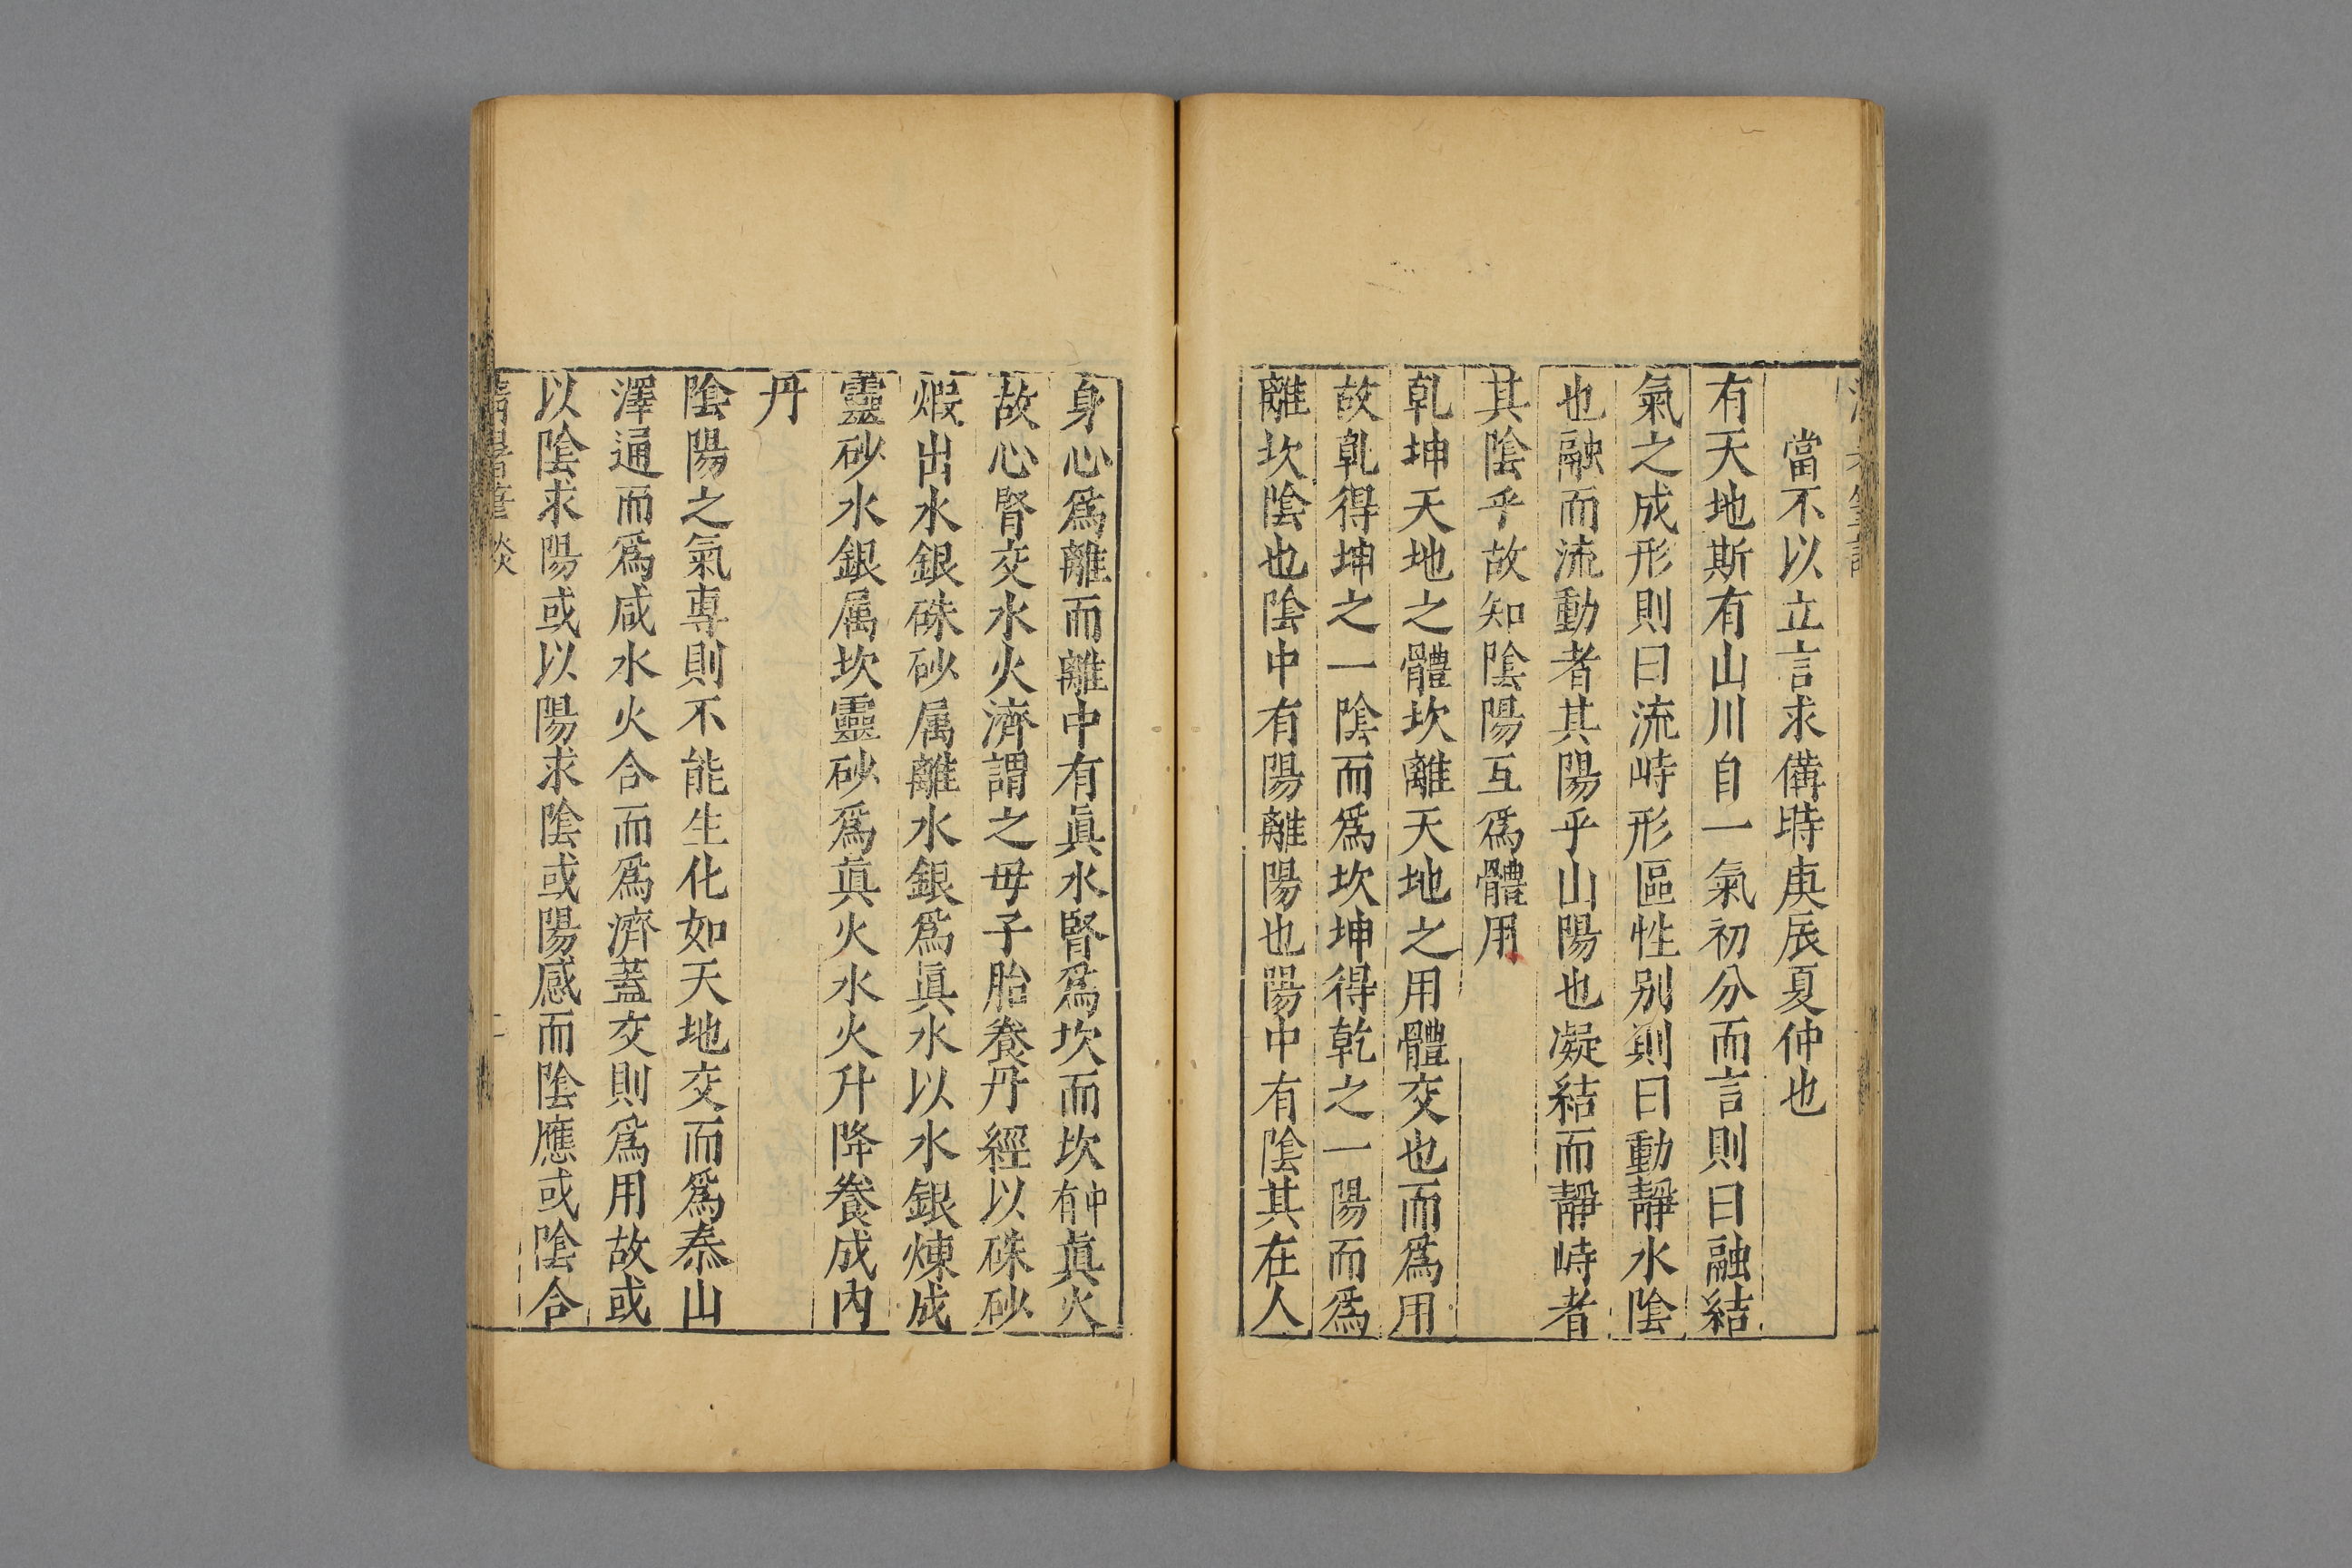 當不以立言求備時庚辰夏仲也
有天地斯有山川自一氣初分而言則曰融結
氣之成形則曰流峙形區性别則曰動靜水陰
也融而流動者其陽乎山陽也凝結而靜峙者
其陰乎故知陰陽互爲體用
乹坤天地之體坎離天地之用體交也而爲用
故乹得坤之一陰而爲坎坤得乾之一陽而爲
離坎陰也陰中有陽離陽也陽中有陰其在人
身心爲離而離中有眞水腎爲坎而坎中有眞火
故心腎交水火濟謂之毋子胎養丹經以硃砂
煆出水銀硃砂属離水銀爲眞水以水銀煉成
靈砂水銀属坎靈砂爲眞火水火升降養成內
丹
陰陽之氣專則不能生化如天地交而爲泰山
澤通而爲咸水火合而爲濟蓋交則爲用故或
以陰求陽或以陽求陰或陽感而陰應或陰合
清暑筆談
二